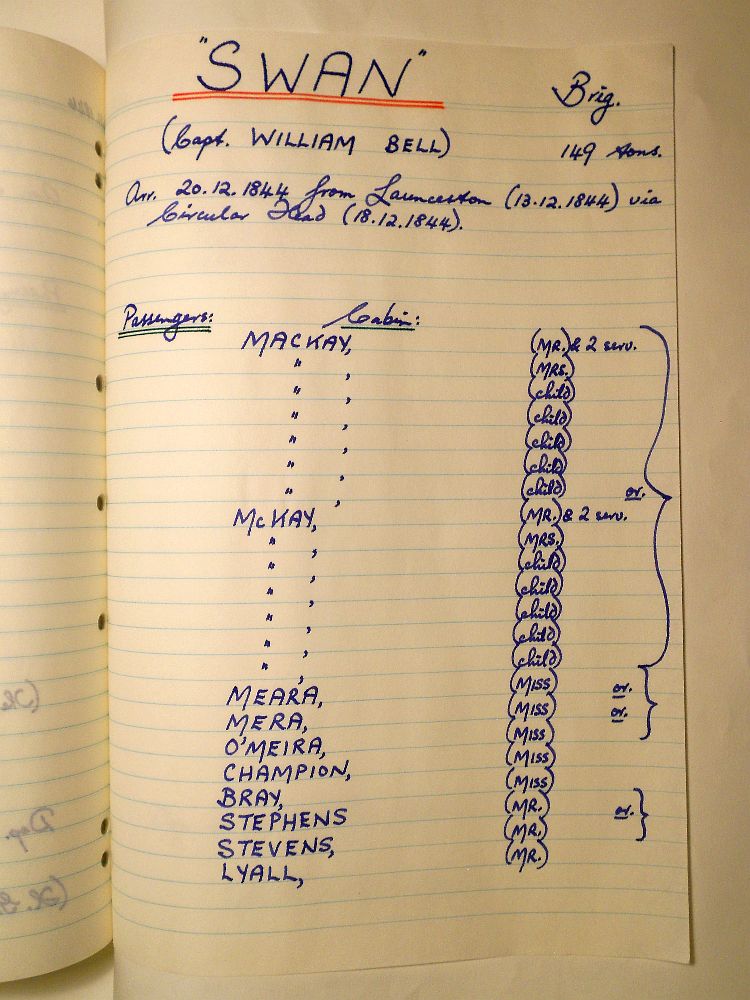 "SWAN"
Brig.
(Capt. WILLIAM BELL)
149 tons.
Arr. 20.12.1844 from Launceston (13.12.1844) via
Circular Head (18.12.1844).
Passengers: Cabin:
MACKAY, (MR.) & 2 serv.
" , (MRS.)
" , (child)
" , (child)
" , (child)
" , (child)
" , (child) or.
McKAY, (MR.) & 2 serv.
" , (MRS.)
" , (child)
" , (child)
" , (child)
" , (child)
" , (child)
MEARA, (MISS) or.
MERA, (MISS) or.
O'MEIRA, (MISS)
CHAMPION, (MISS)
BRAY, (MISS)
STEPHENS (MR.) or.
STEVENS, (MR.)
LYALL, (MR.)